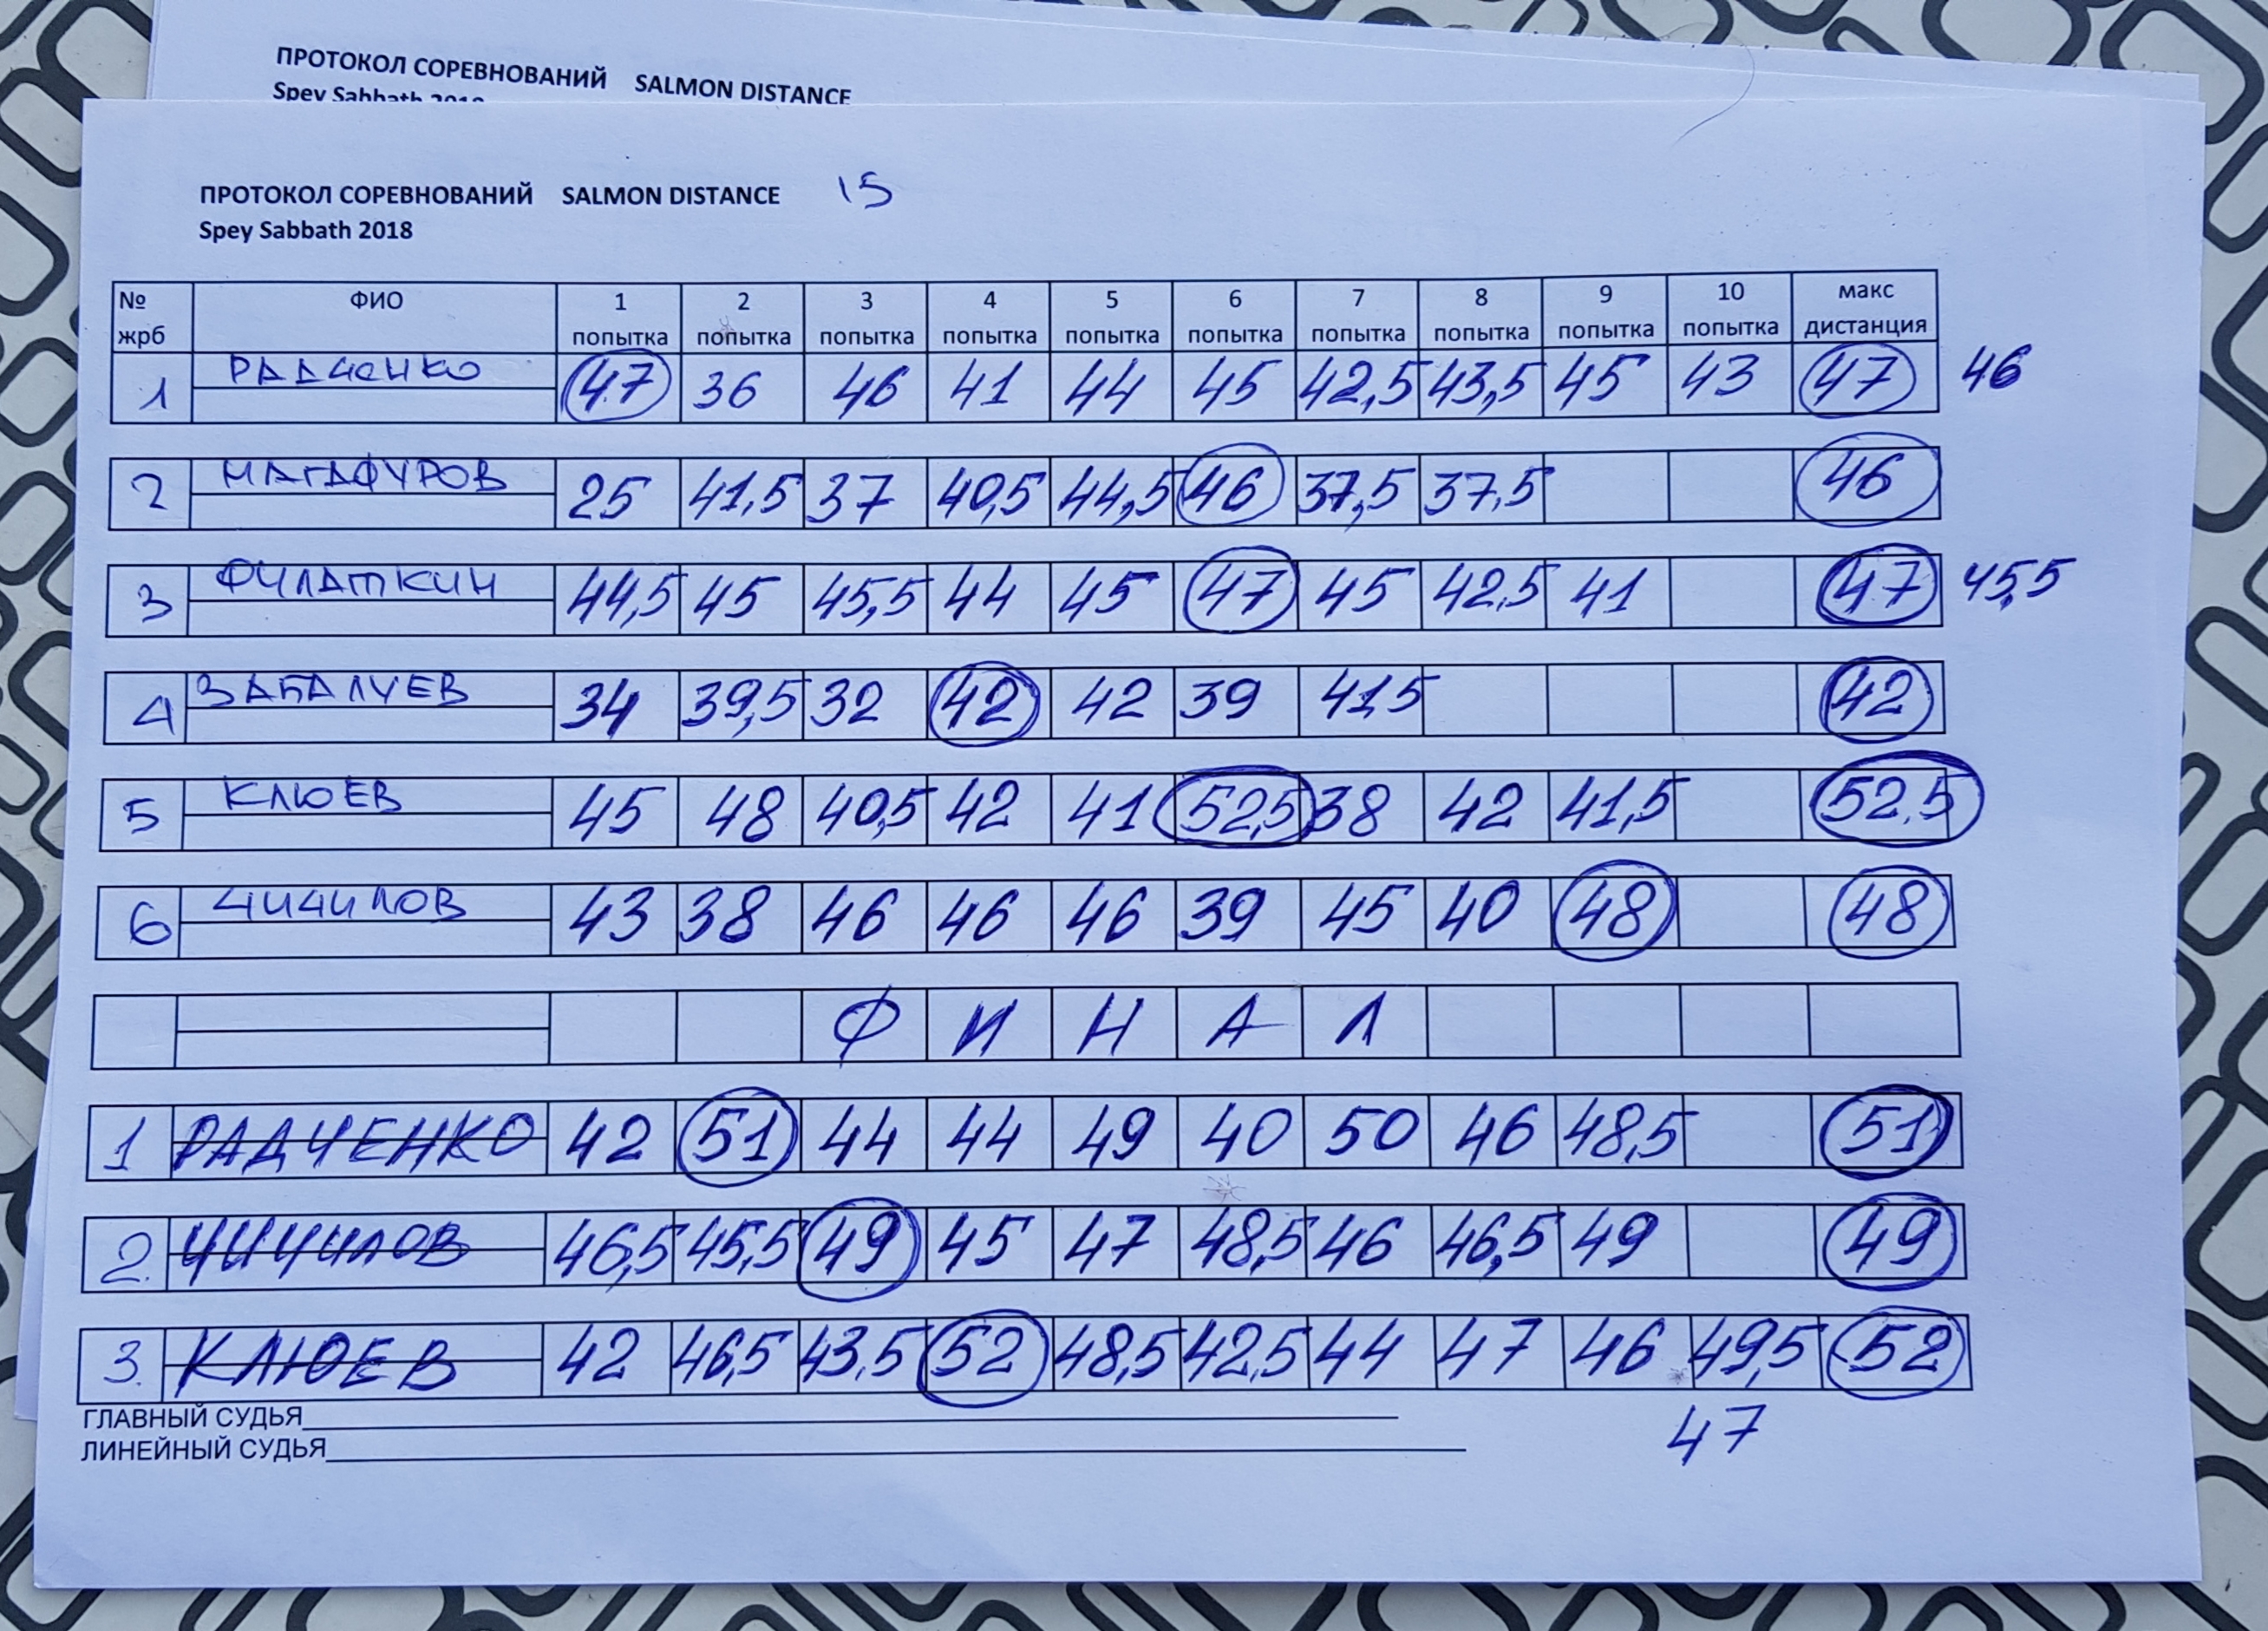 ПРОТОКОЛ СОРЕВНОВАНИЙ SALMON DISTANCE
Spey Sabbath 2018
ПРОТОКОЛ СОРЕВНОВАНИЙ SALMON DISTANCE 15
Spey Sabbath 2018
№ жрб ФИО 1 попытка 2 попытка 3 попытка 4 попытка 5 попытка 6 попытка 7 попытка 8 попытка 9 попытка 10 попытка макс дистанция
1 РАДЧЕНКО 47 36 46 41 44 45 42,5 43,5 45 43 47 46
2 МАГАФУРОВ 25 41,5 37 40,5 44,5 46 37,5 37,5 46
3 ФИЛАТКИН 44,5 45 45,5 44 45 47 45 42,5 41 47 45,5
4 ЗАБАЛУЕВ 34 39,5 32 42 42 39 41,5 42
5 КЛЮЕВ 45 48 40,5 42 41 52,5 38 42 41,5 52,5
6 ЧИЧИЛОВ 43 38 46 46 46 39 45 40 48 48
Ф И Н А Л
1 РАДЧЕНКО 42 51 44 44 49 40 50 46 48,5 51
2. ЧИЧИЛОВ 46,5 45,5 49 45 47 48,5 46 46,5 49 49
3. КЛЮЕВ 42 46,5 43,5 52 48,5 42,5 44 47 46 49,5 52
ГЛАВНЫЙ СУДЬЯ
47
ЛИНЕЙНЫЙ СУДЬЯ